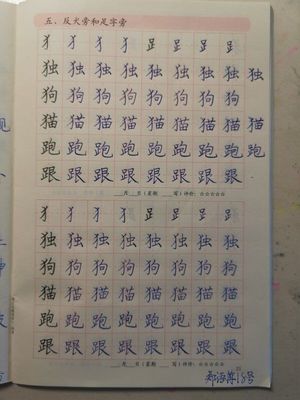 五、反犬旁和足字旁
犭 犭 犭 犭 𧾷 𧾷 𧾷 𧾷
独 独 独 独 独 独 独 独 独
狗 狗 狗 狗 狗 狗 狗 狗
猫 猫 猫 猫 猫 猫 猫 猫 猫
跑 跑 跑 跑 跑 跑 跑 跑 跑
跟 跟 跟 跟 跟 跟 跟 跟
月 日(星期 写)评价:☆☆☆☆☆
犭 犭 犭 犭 𧾷 𧾷 𧾷 𧾷
独 独 独 独 独 独 独 独
狗 狗 狗 狗 狗 狗 狗 狗
猫 猫 猫 猫 猫 猫 猫 猫
跑 跑 跑 跑 跑 跑 跑 跑
跟 跟 跟 跟 跟 跟 跟 跟
月 日(星期 写)评价:☆☆☆☆☆
18号